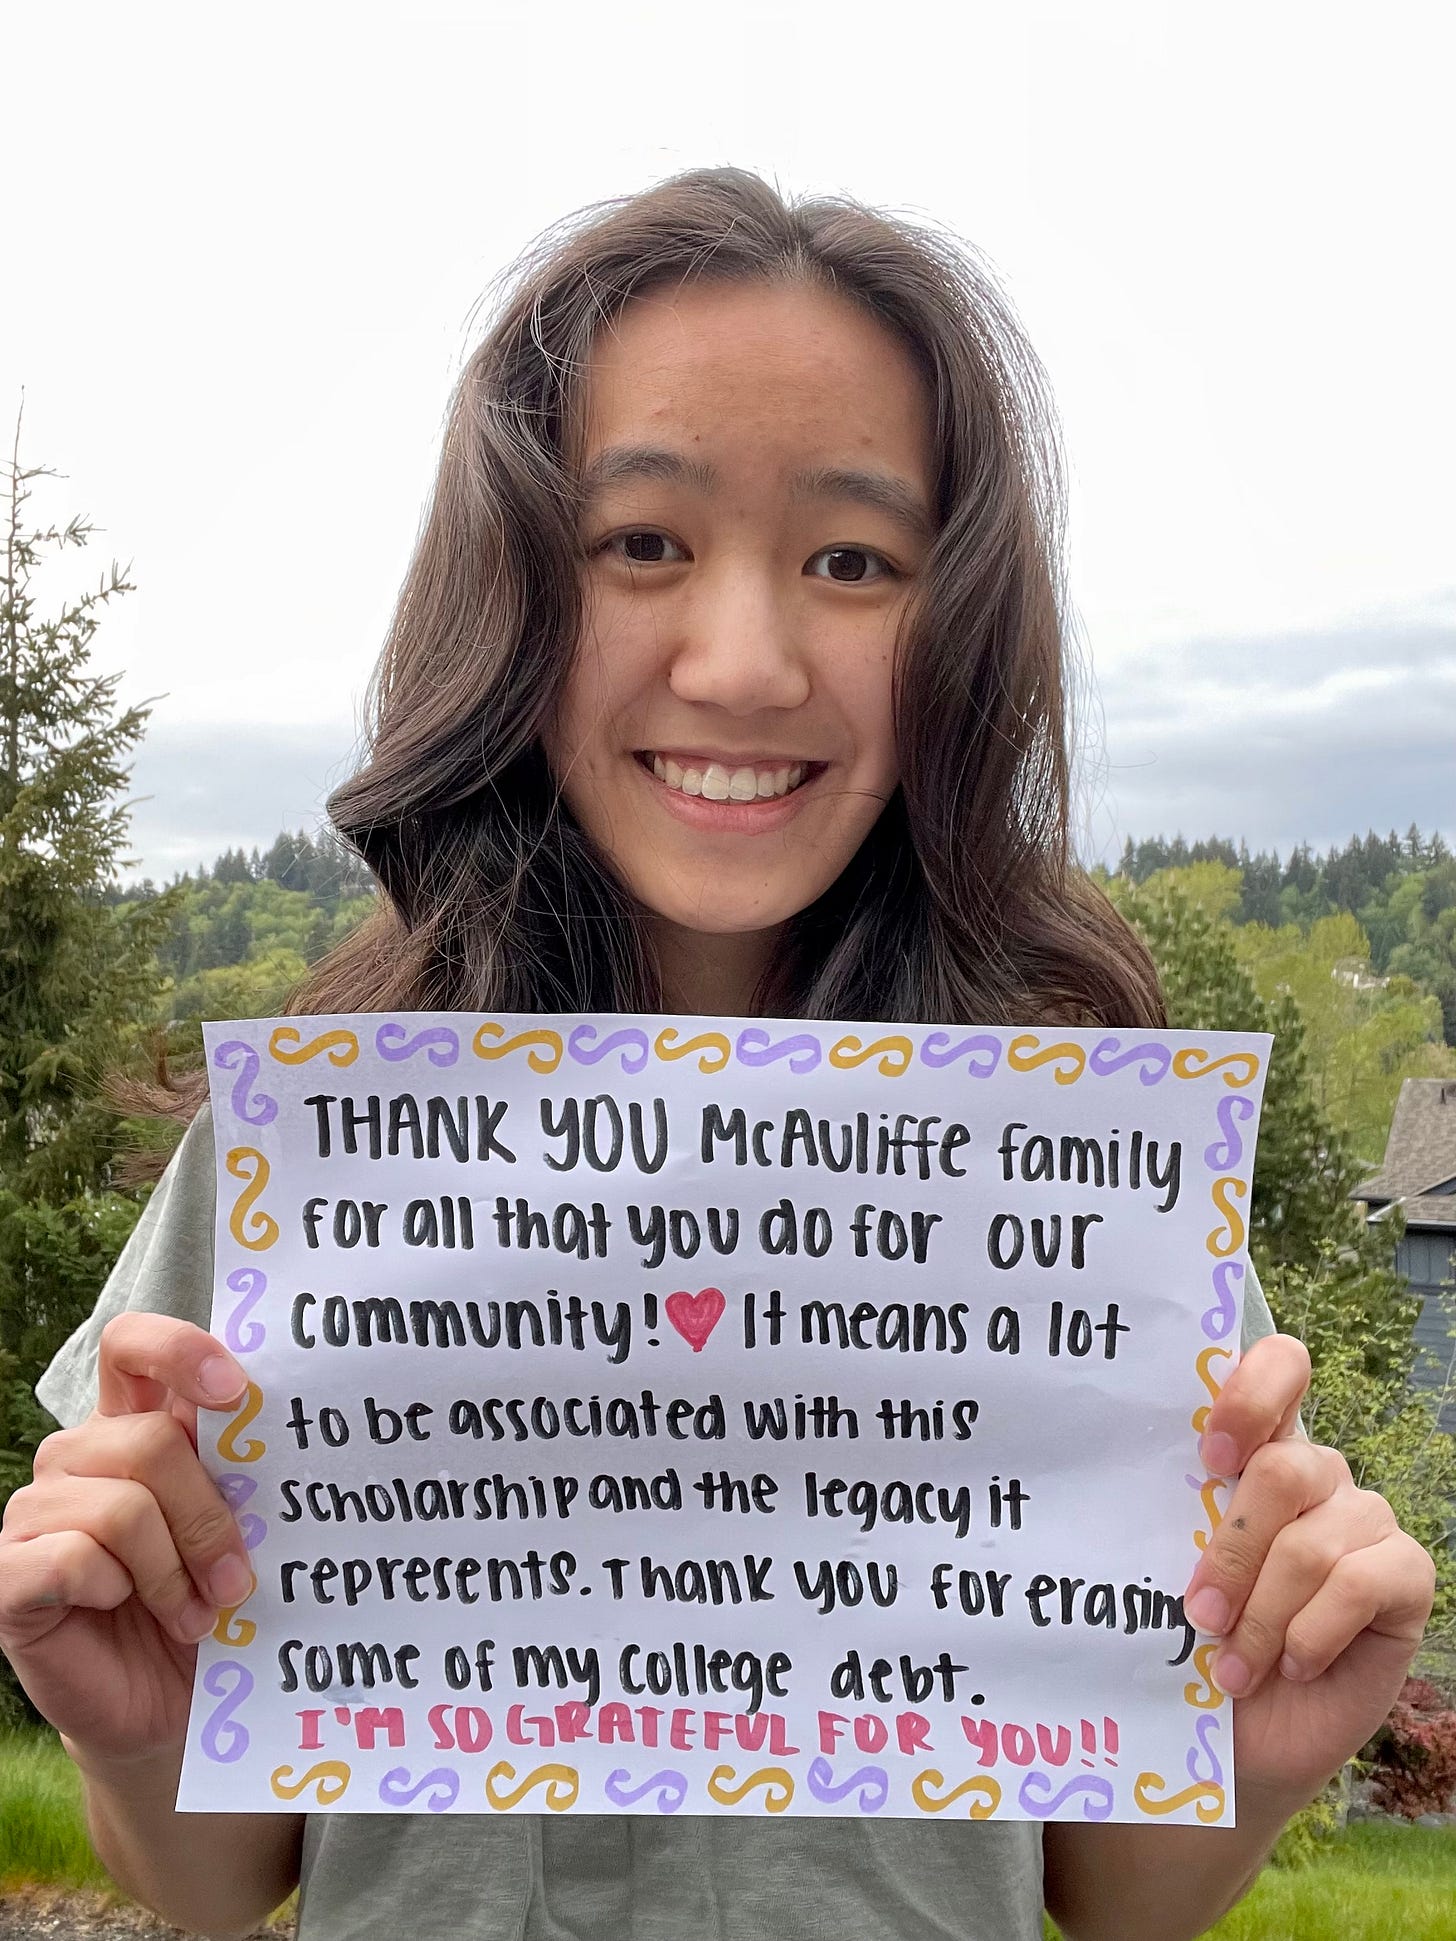 THANK YOU McAuliffe family
for all that you do for our
community! ♥ It means a lot
to be associated with this
scholarship and the legacy it
represents. Thank you for erasing
some of my college debt.
I'M SO GRATEFUL FOR YOU!!